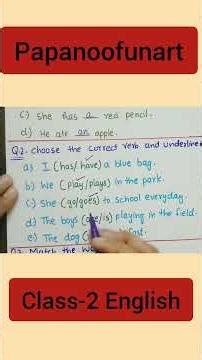 Papanoofunart
c) She has a red pencil.
d) He ate an apple.
Q.2. Choose the correct verb and underline
a) I (has/have) a blue bag.
b) We (play/plays) in the park.
c) She (go/goes) to school everyday.
d) The boys (are/is) playing in the field.
e) The dog
Q3. Match the
Class-2 English